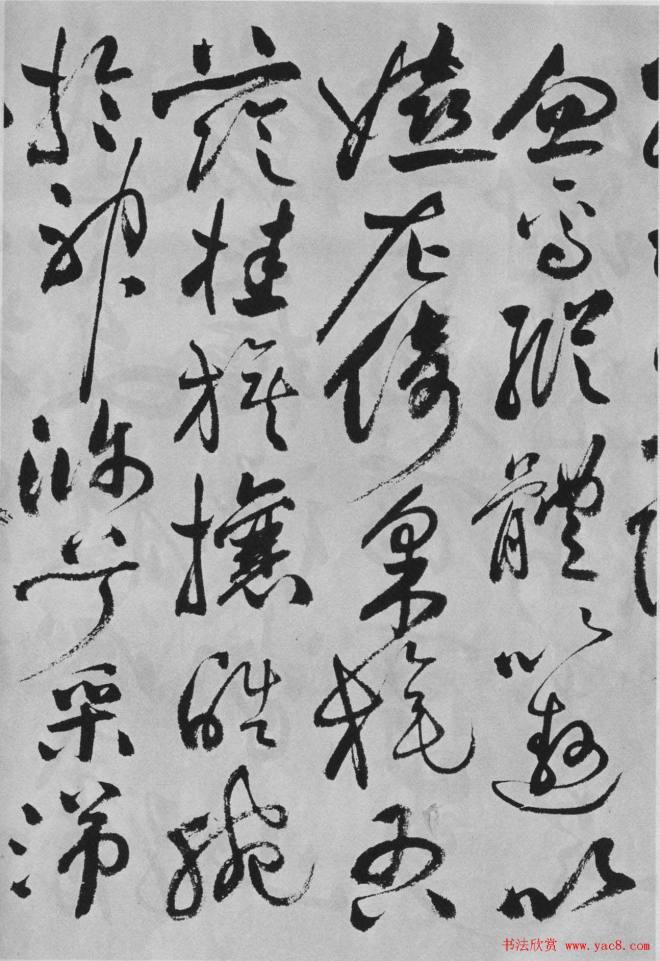 忽焉縱體以遨以
嬉左倚采旄右
蔭桂旗攘皓腕
於神滸兮采湍
书法欣赏 www.yac8.com